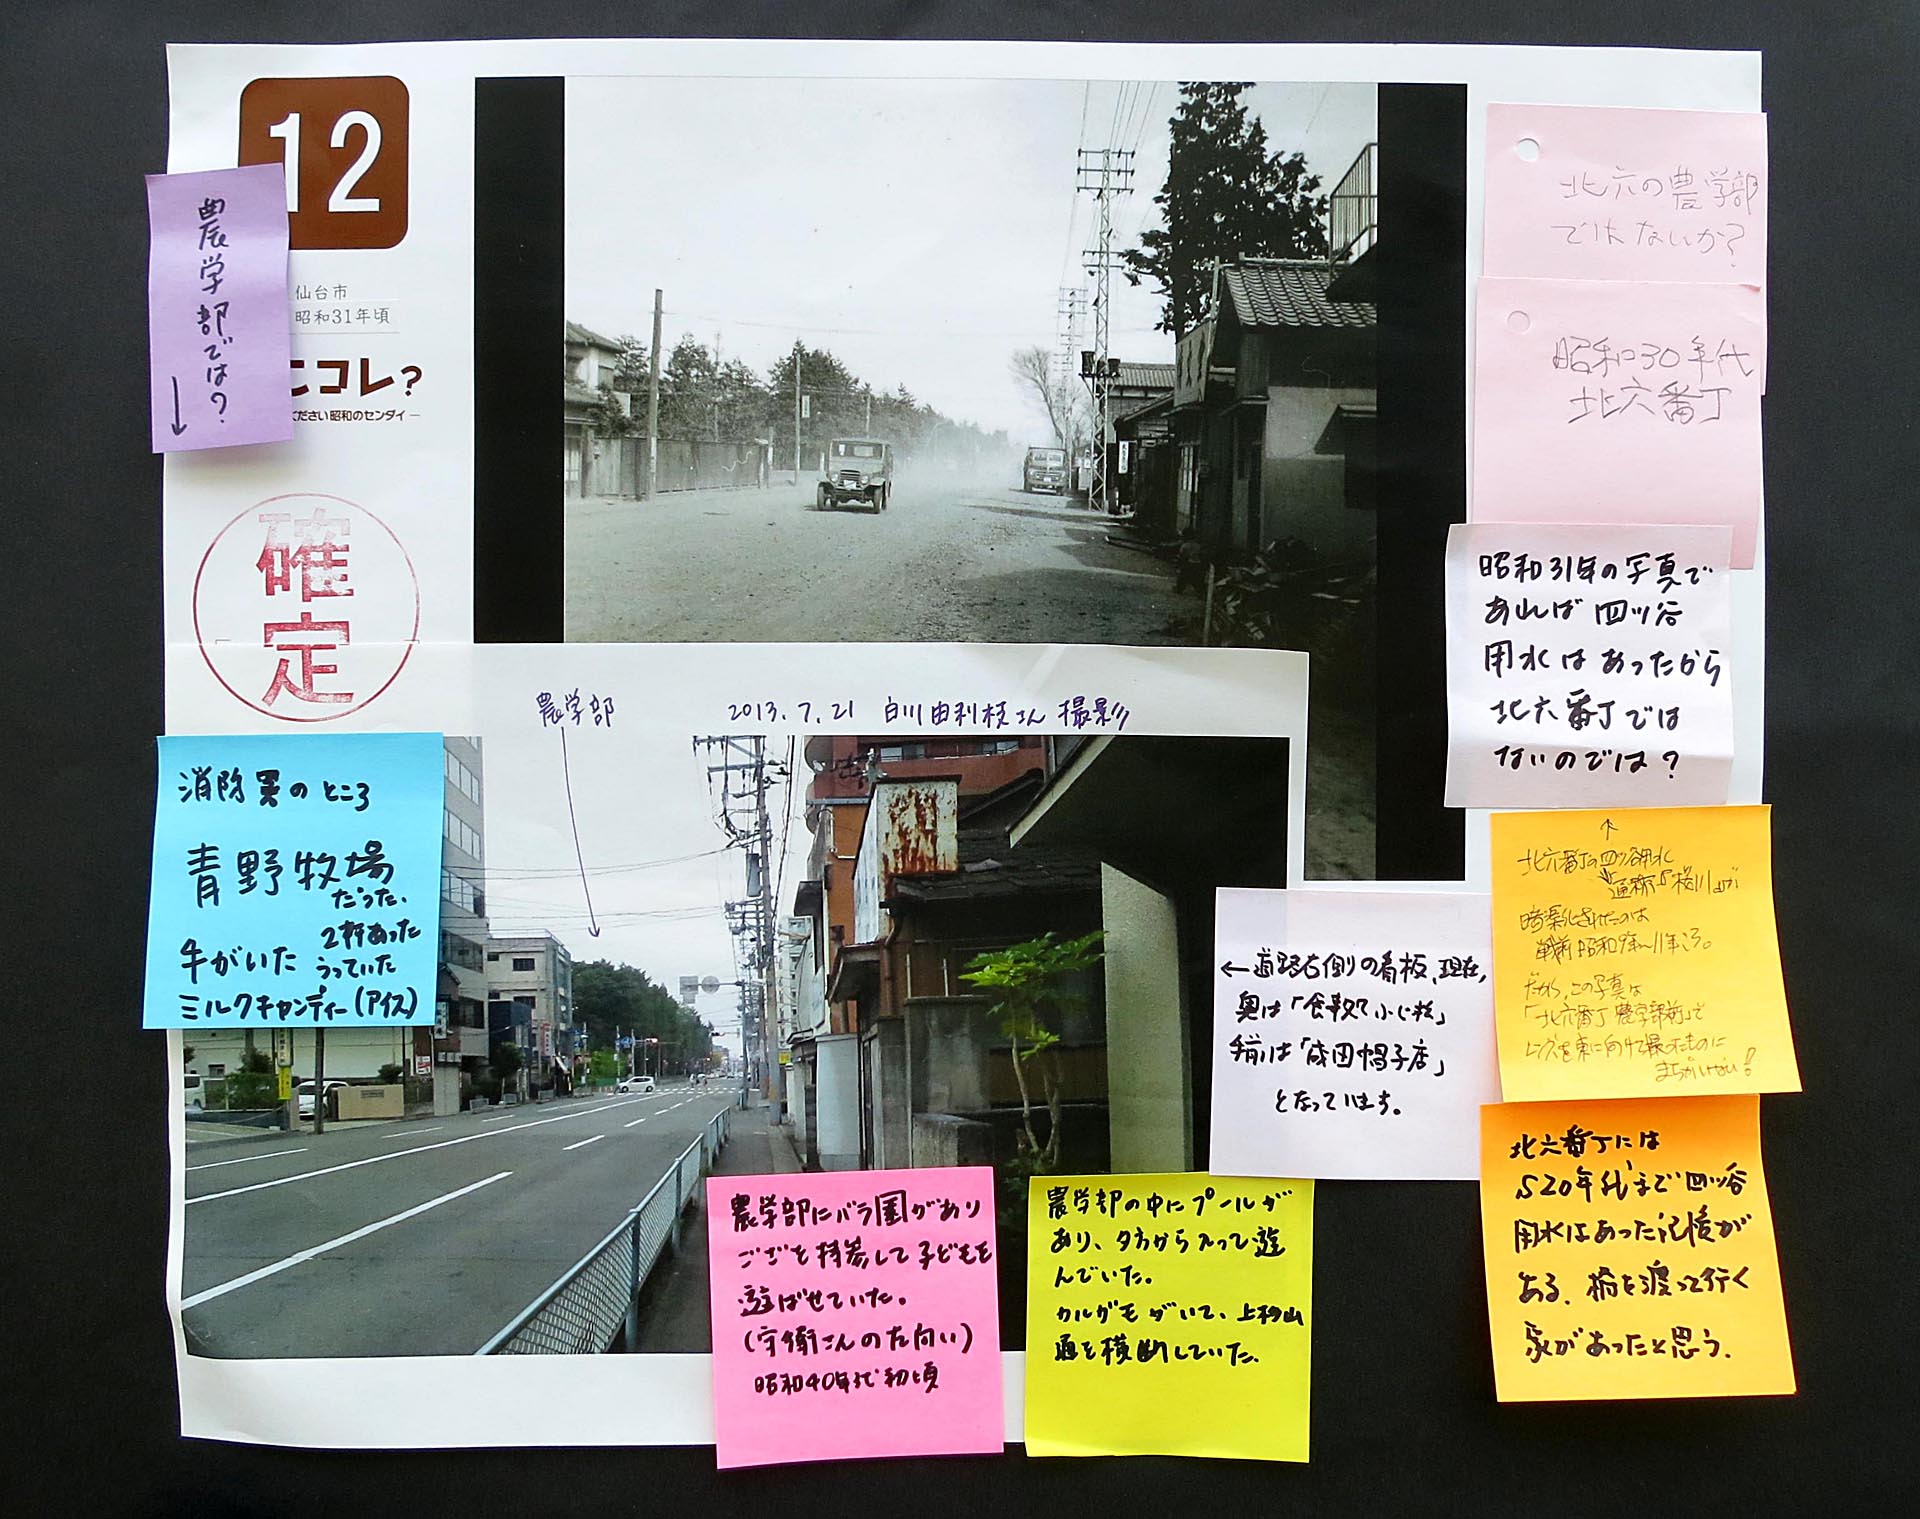 12
農学部では?
↓
仙台市
昭和31年頃
こコレ?
ください昭和のセンダイ ー
確定
農学部
2013.7.21 白川由利枝さん撮影
北六の農学部
ではないか?
昭和30年代
北六番丁
昭和31年の写真で
あれば四ツ谷
用水はあったから
北六番丁では
ないのでは?
↑
北六番丁の四ツ谷用水
通称「桜川」が
暗渠化されたのは
戦前昭和9年〜11年ころ。
だから、この写真は
「北六番丁農学部前」で
レンズを東に向けて撮ったものに
まちがいない!
北六番丁には
S20年代まで四ツ谷
用水はあった記憶が
ある。橋を渡って行く
家があったと思う。
消防署のところ
青野牧場
だった。
2軒あった
牛がいた
うっていた
ミルクキャンディー(アイス)
←道路右側の看板、現在、
奥は「食教てふじ松」
手前は「成田帽子店」
となっています。
農学部にバラ園があり
ござを持参して子どもを
遊ばせていた。
(守衛さんの左向い)
昭和40年代初頃
農学部の中にプールが
あり、夕方から入って遊
んでいた。
カルガモがいて、上杉山
通を横断していた。